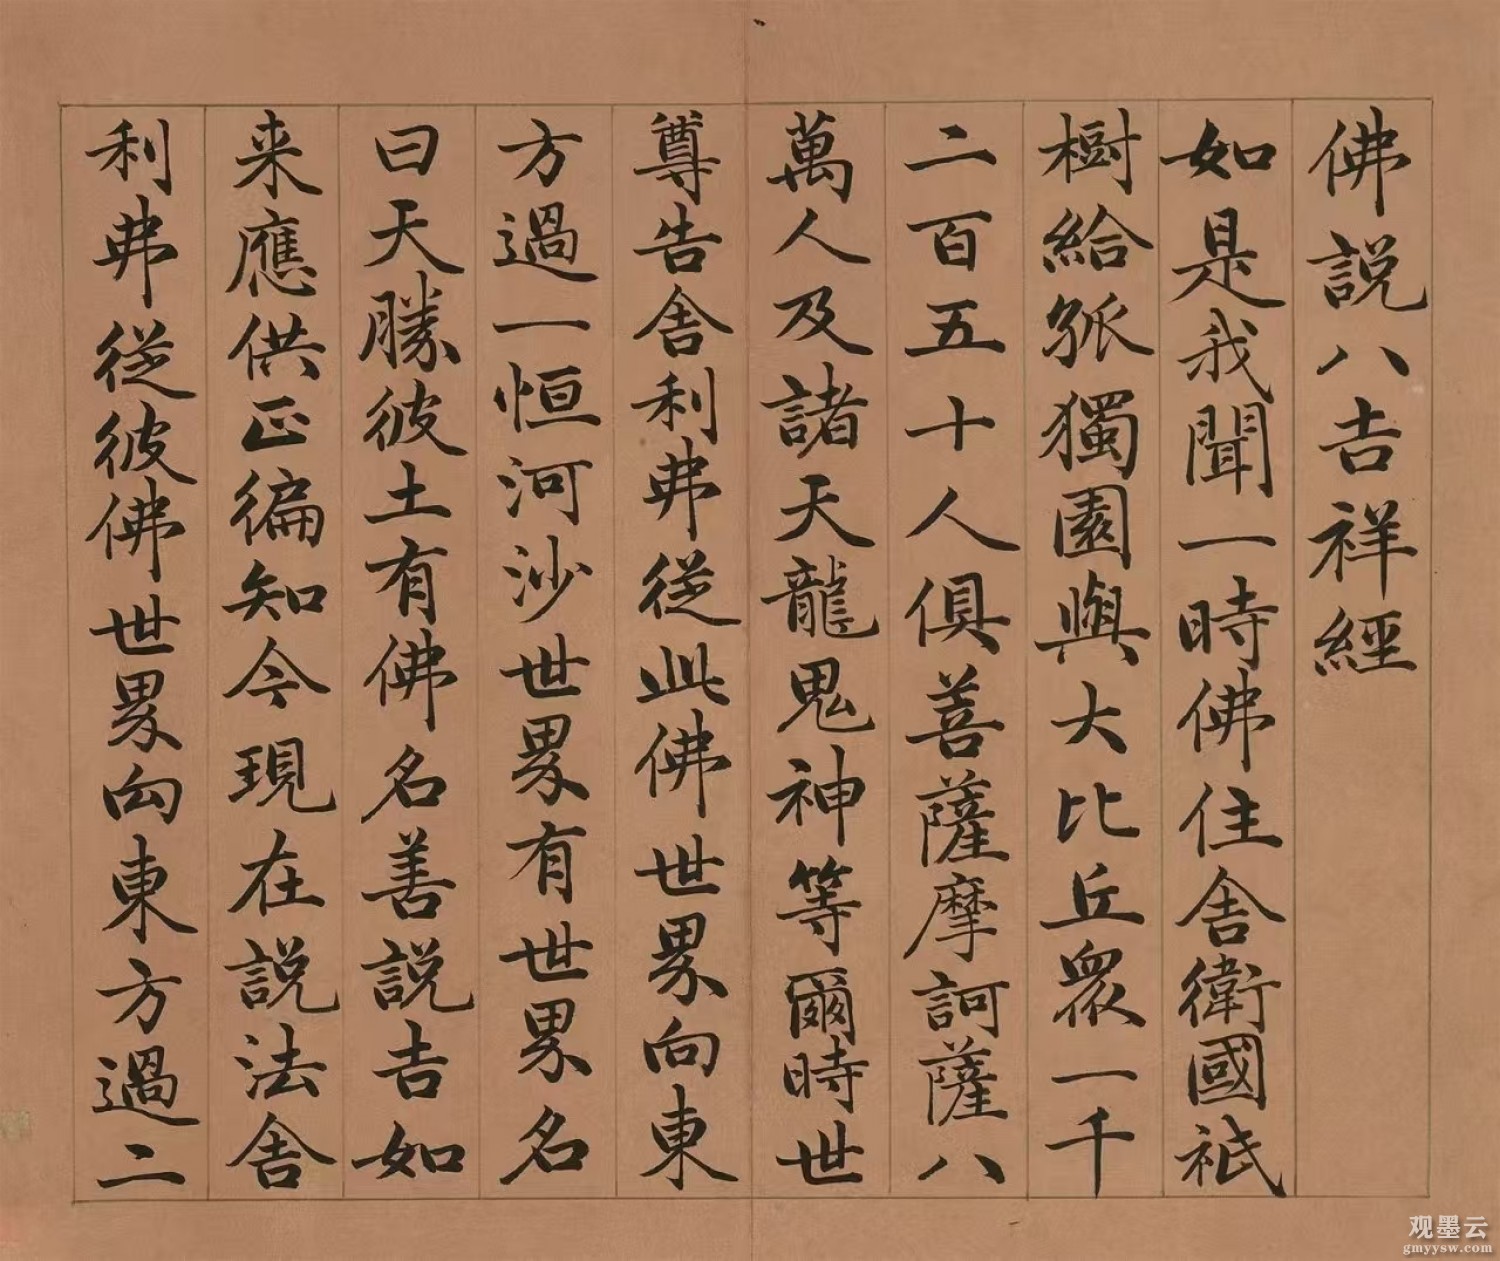 佛說八吉祥經
如是我聞一時佛住舍衛國祇
樹給孤獨園與大比丘眾一千
二百五十人俱菩薩摩訶薩八
萬人及諸天龍鬼神等爾時世
尊告舍利弗從此佛世界向東
方過一恒河沙世界有世界名
曰天勝彼土有佛名善說吉如
来應供正徧知今現在說法舍
利弗從彼佛世界向東方過二
观墨云
gmyysw.com